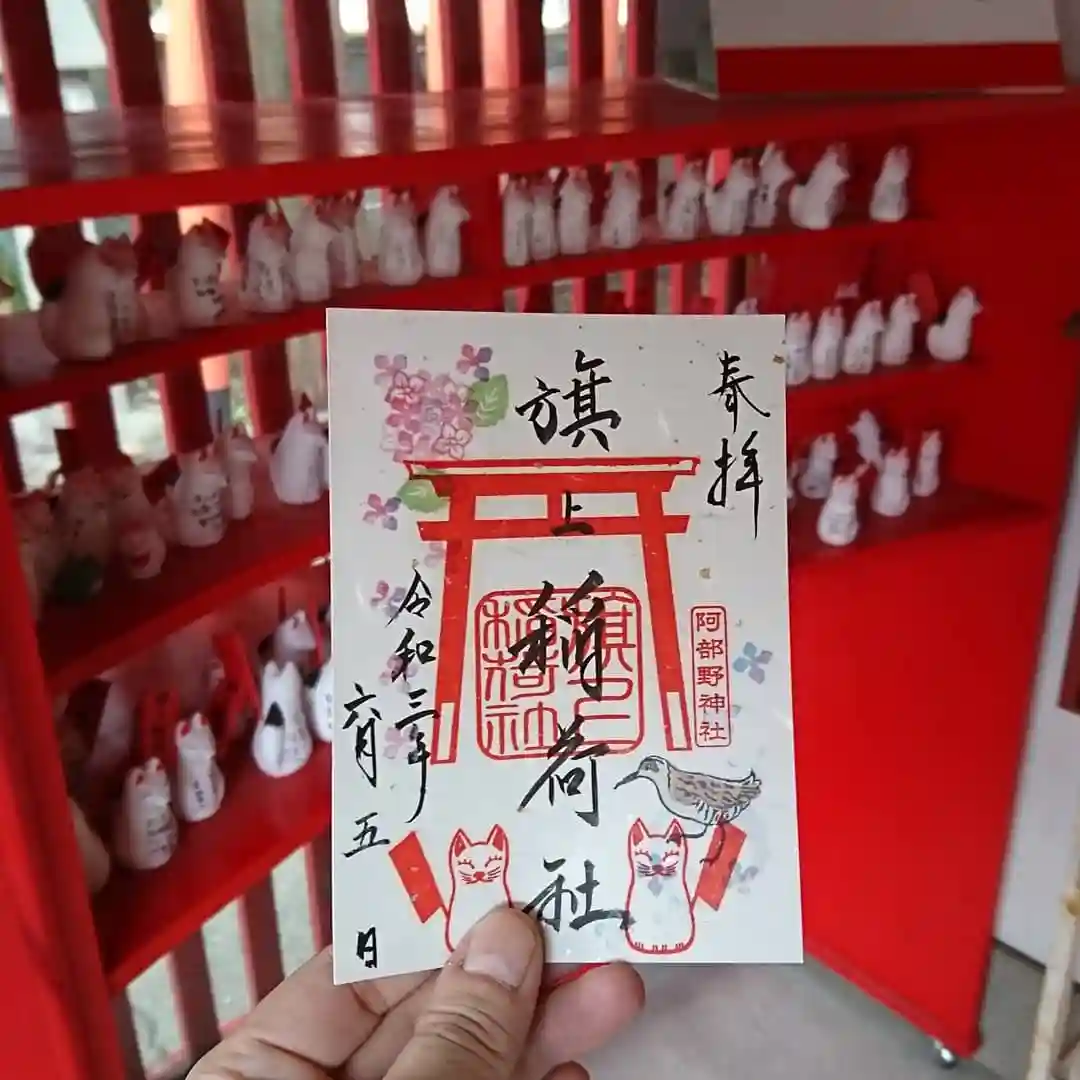 奉拝
阿部野神社
旗上稲荷社
旗上
稲荷社
令和三年
六月五日